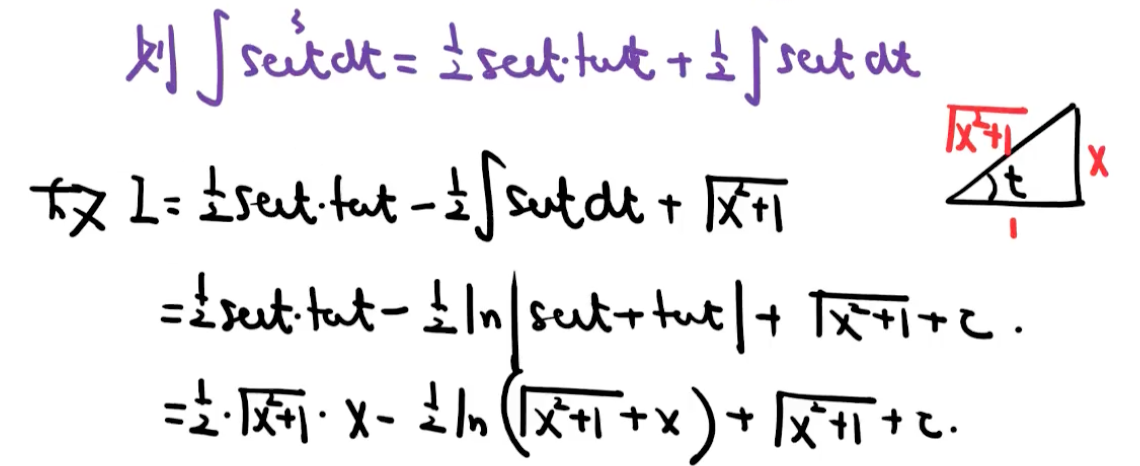 则 ∫sec³t dt = ½ sect·tant + ½ ∫sect dt
√(x²+1)
x
t
1
故 I = ½ sect·tant − ½ ∫sect dt + √(x²+1)
= ½ sect·tant − ½ ln|sect + tant| + √(x²+1) + c.
= ½·√(x²+1)·x − ½ ln(√(x²+1) + x) + √(x²+1) + c.